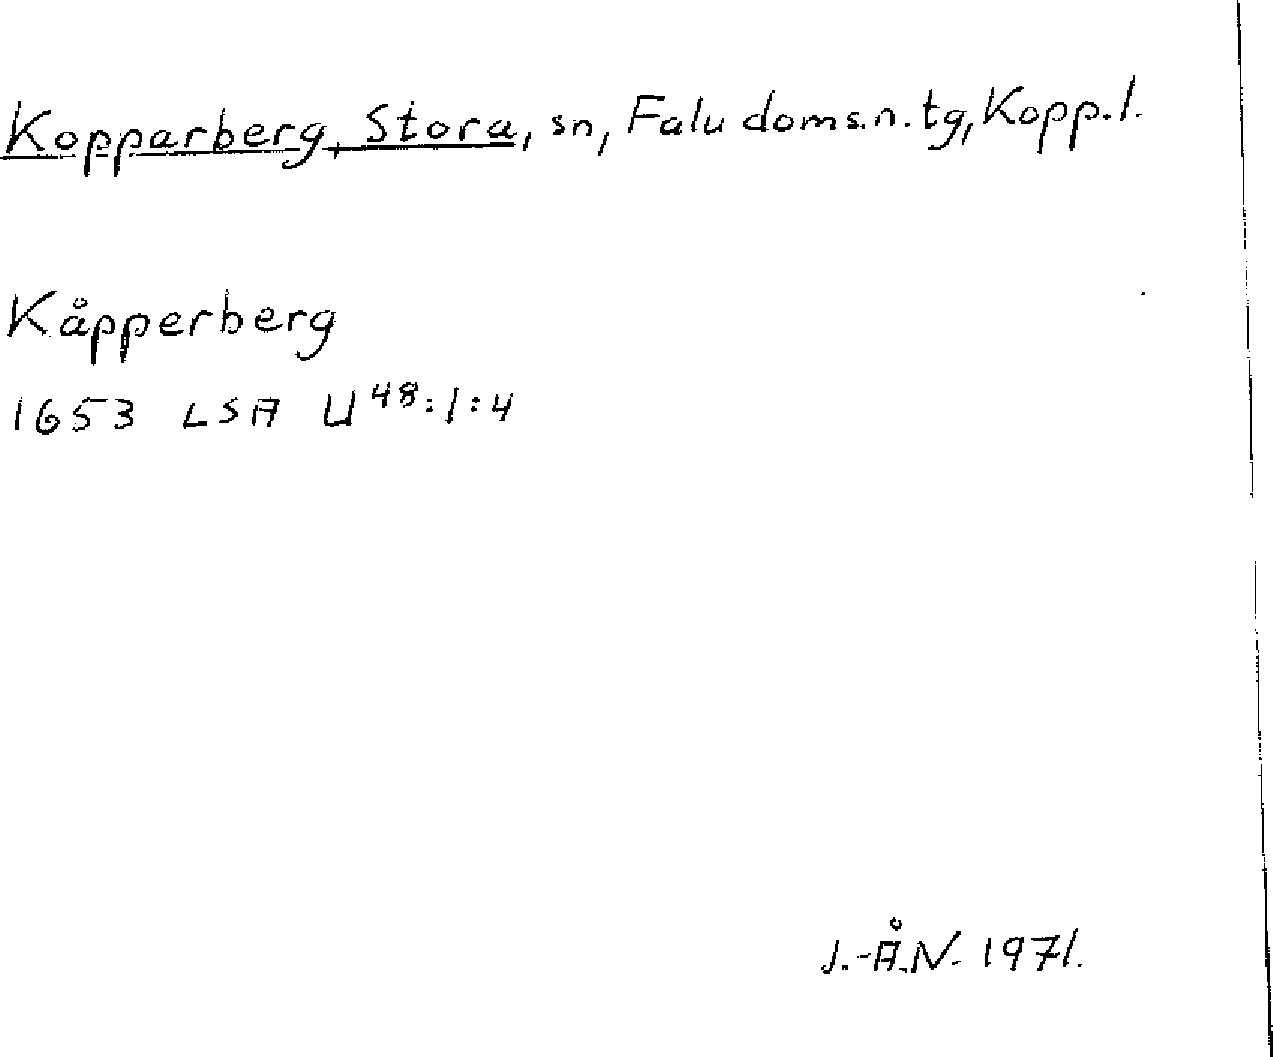 Kopparberg, Stora, sn, Falu doms.n. tg, Kopp.l.
Kåpperberg
1653 LSA U 48:1:4
J.-Å.N. 1971.